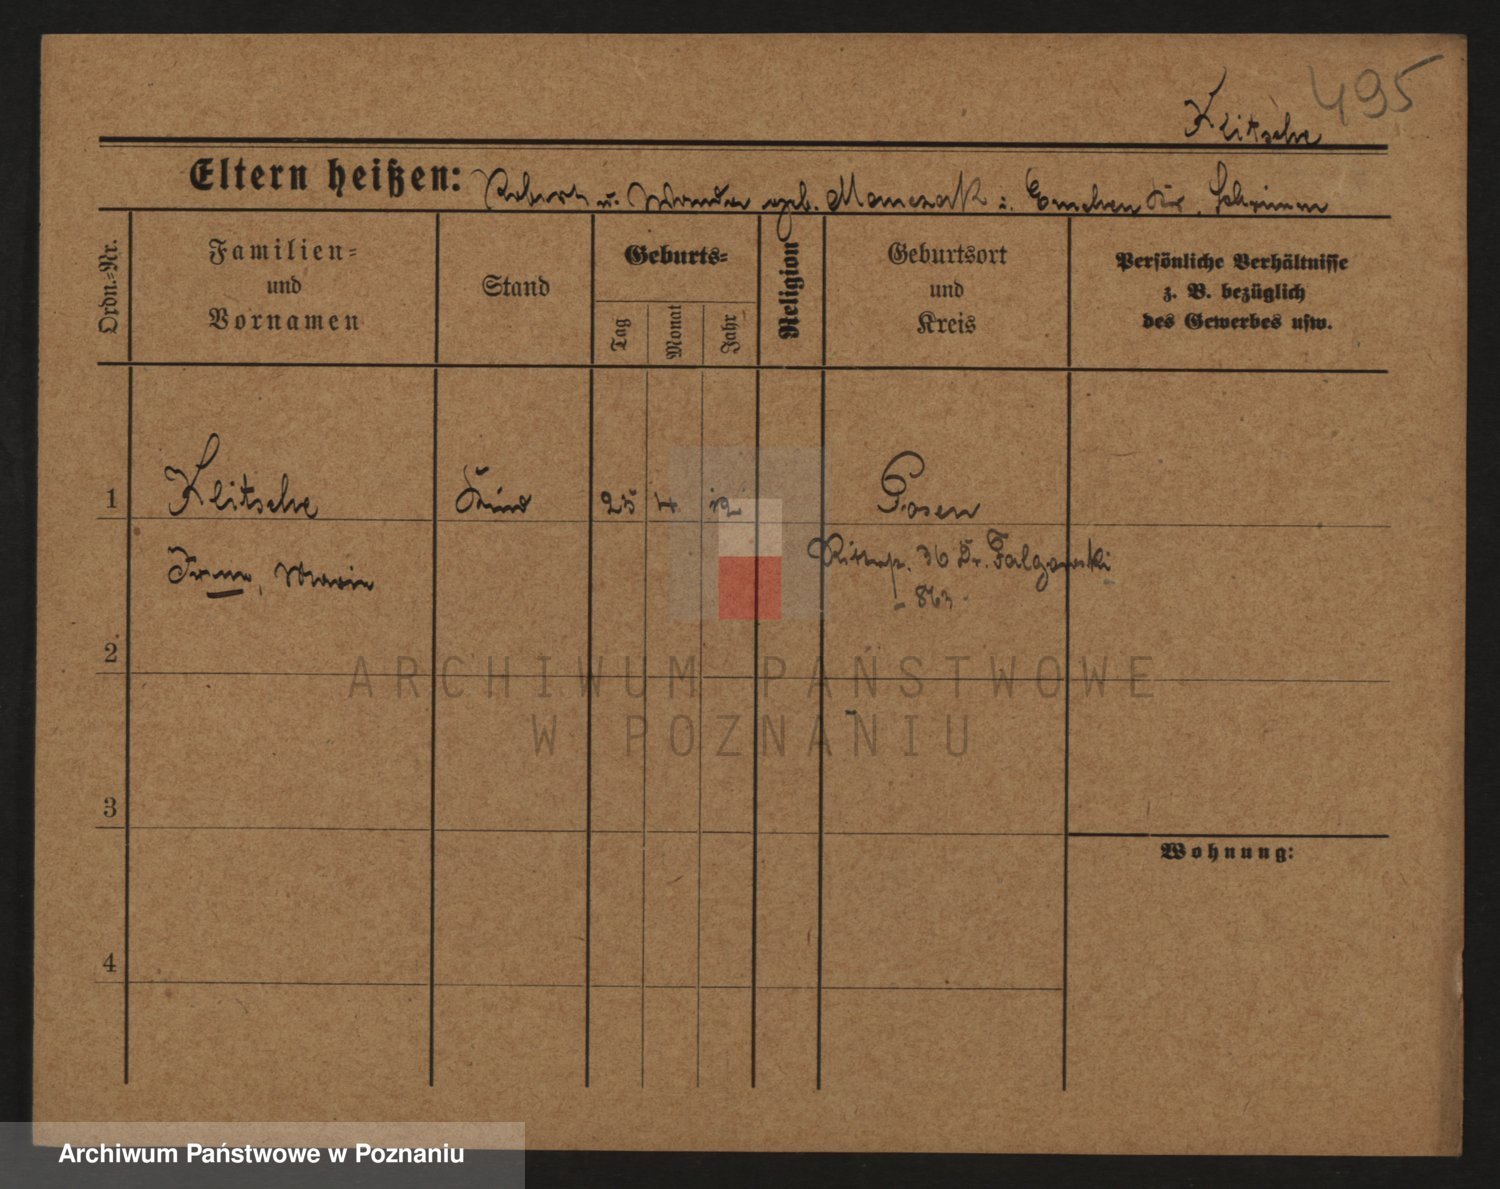 495
Klitsche
Eltern heißen: Robert u. geb. Manczak i. Emchen Kr. Schrimm
Ordn.-Nr.
Familien-
und
Vornamen
Stand
Geburts-
Tag
Monat
Jahr
Religion
Geburtsort
und
Kreis
Persönliche Verhältnisse
z. B. bezüglich
des Gewerbes usw.
1 Klitsche Kind 25 4 12 Posen
Irene, Maria 36 Dr. Falgowski
2
ARCHIWUM PAŃSTWOWE
W POZNANIU
3
Wohnung:
4
Archiwum Państwowe w Poznaniu